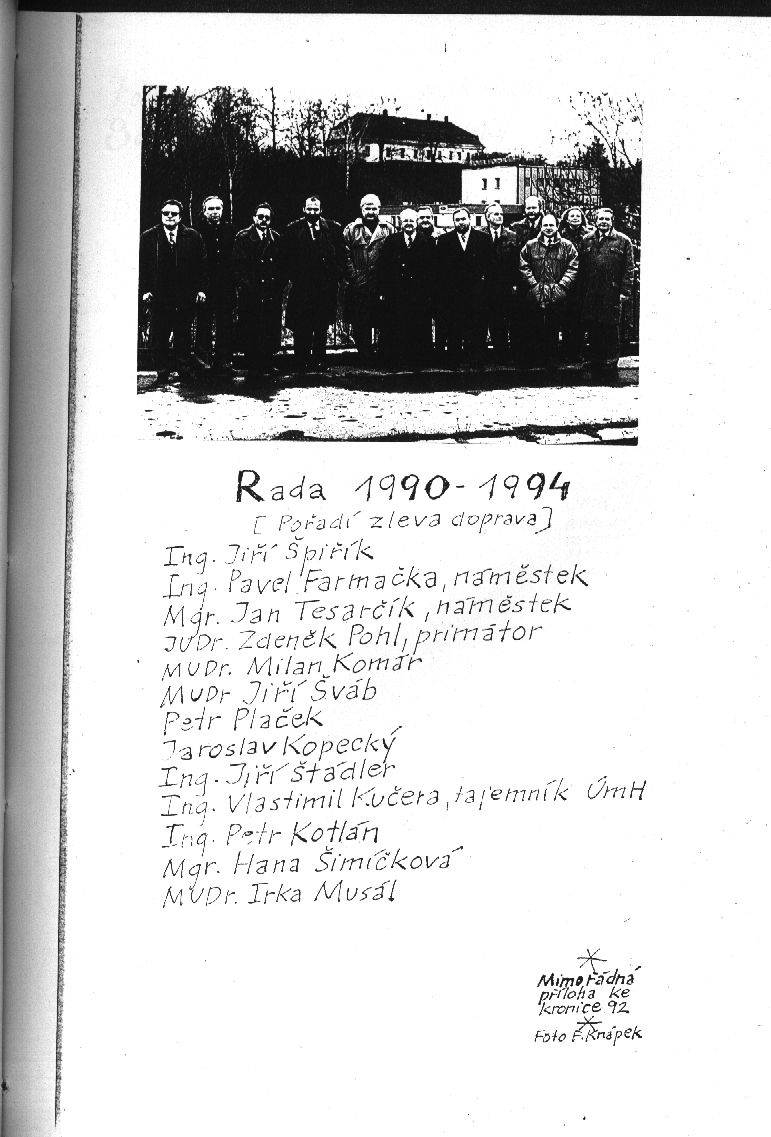 Rada 1990-1994
[Pořadí zleva doprava]
Ing. Jiří Špiřík
Ing. Pavel Farmačka, náměstek
Mgr. Jan Tesarčík, náměstek
JUDr. Zdeněk Pohl, primátor
MUDr. Milan Komár
MUDr Jiří Šváb
Petr Plaček
Jaroslav Kopecký
Ing. Jiří Štádler
Ing. Vlastimil Kučera, tajemník ÚmH
Ing. Petr Kotlán
Mgr. Hana Šimíčková
MUDr. Irka Musál
Mimořádná
příloha ke
kronice 92
Foto F. Knápek